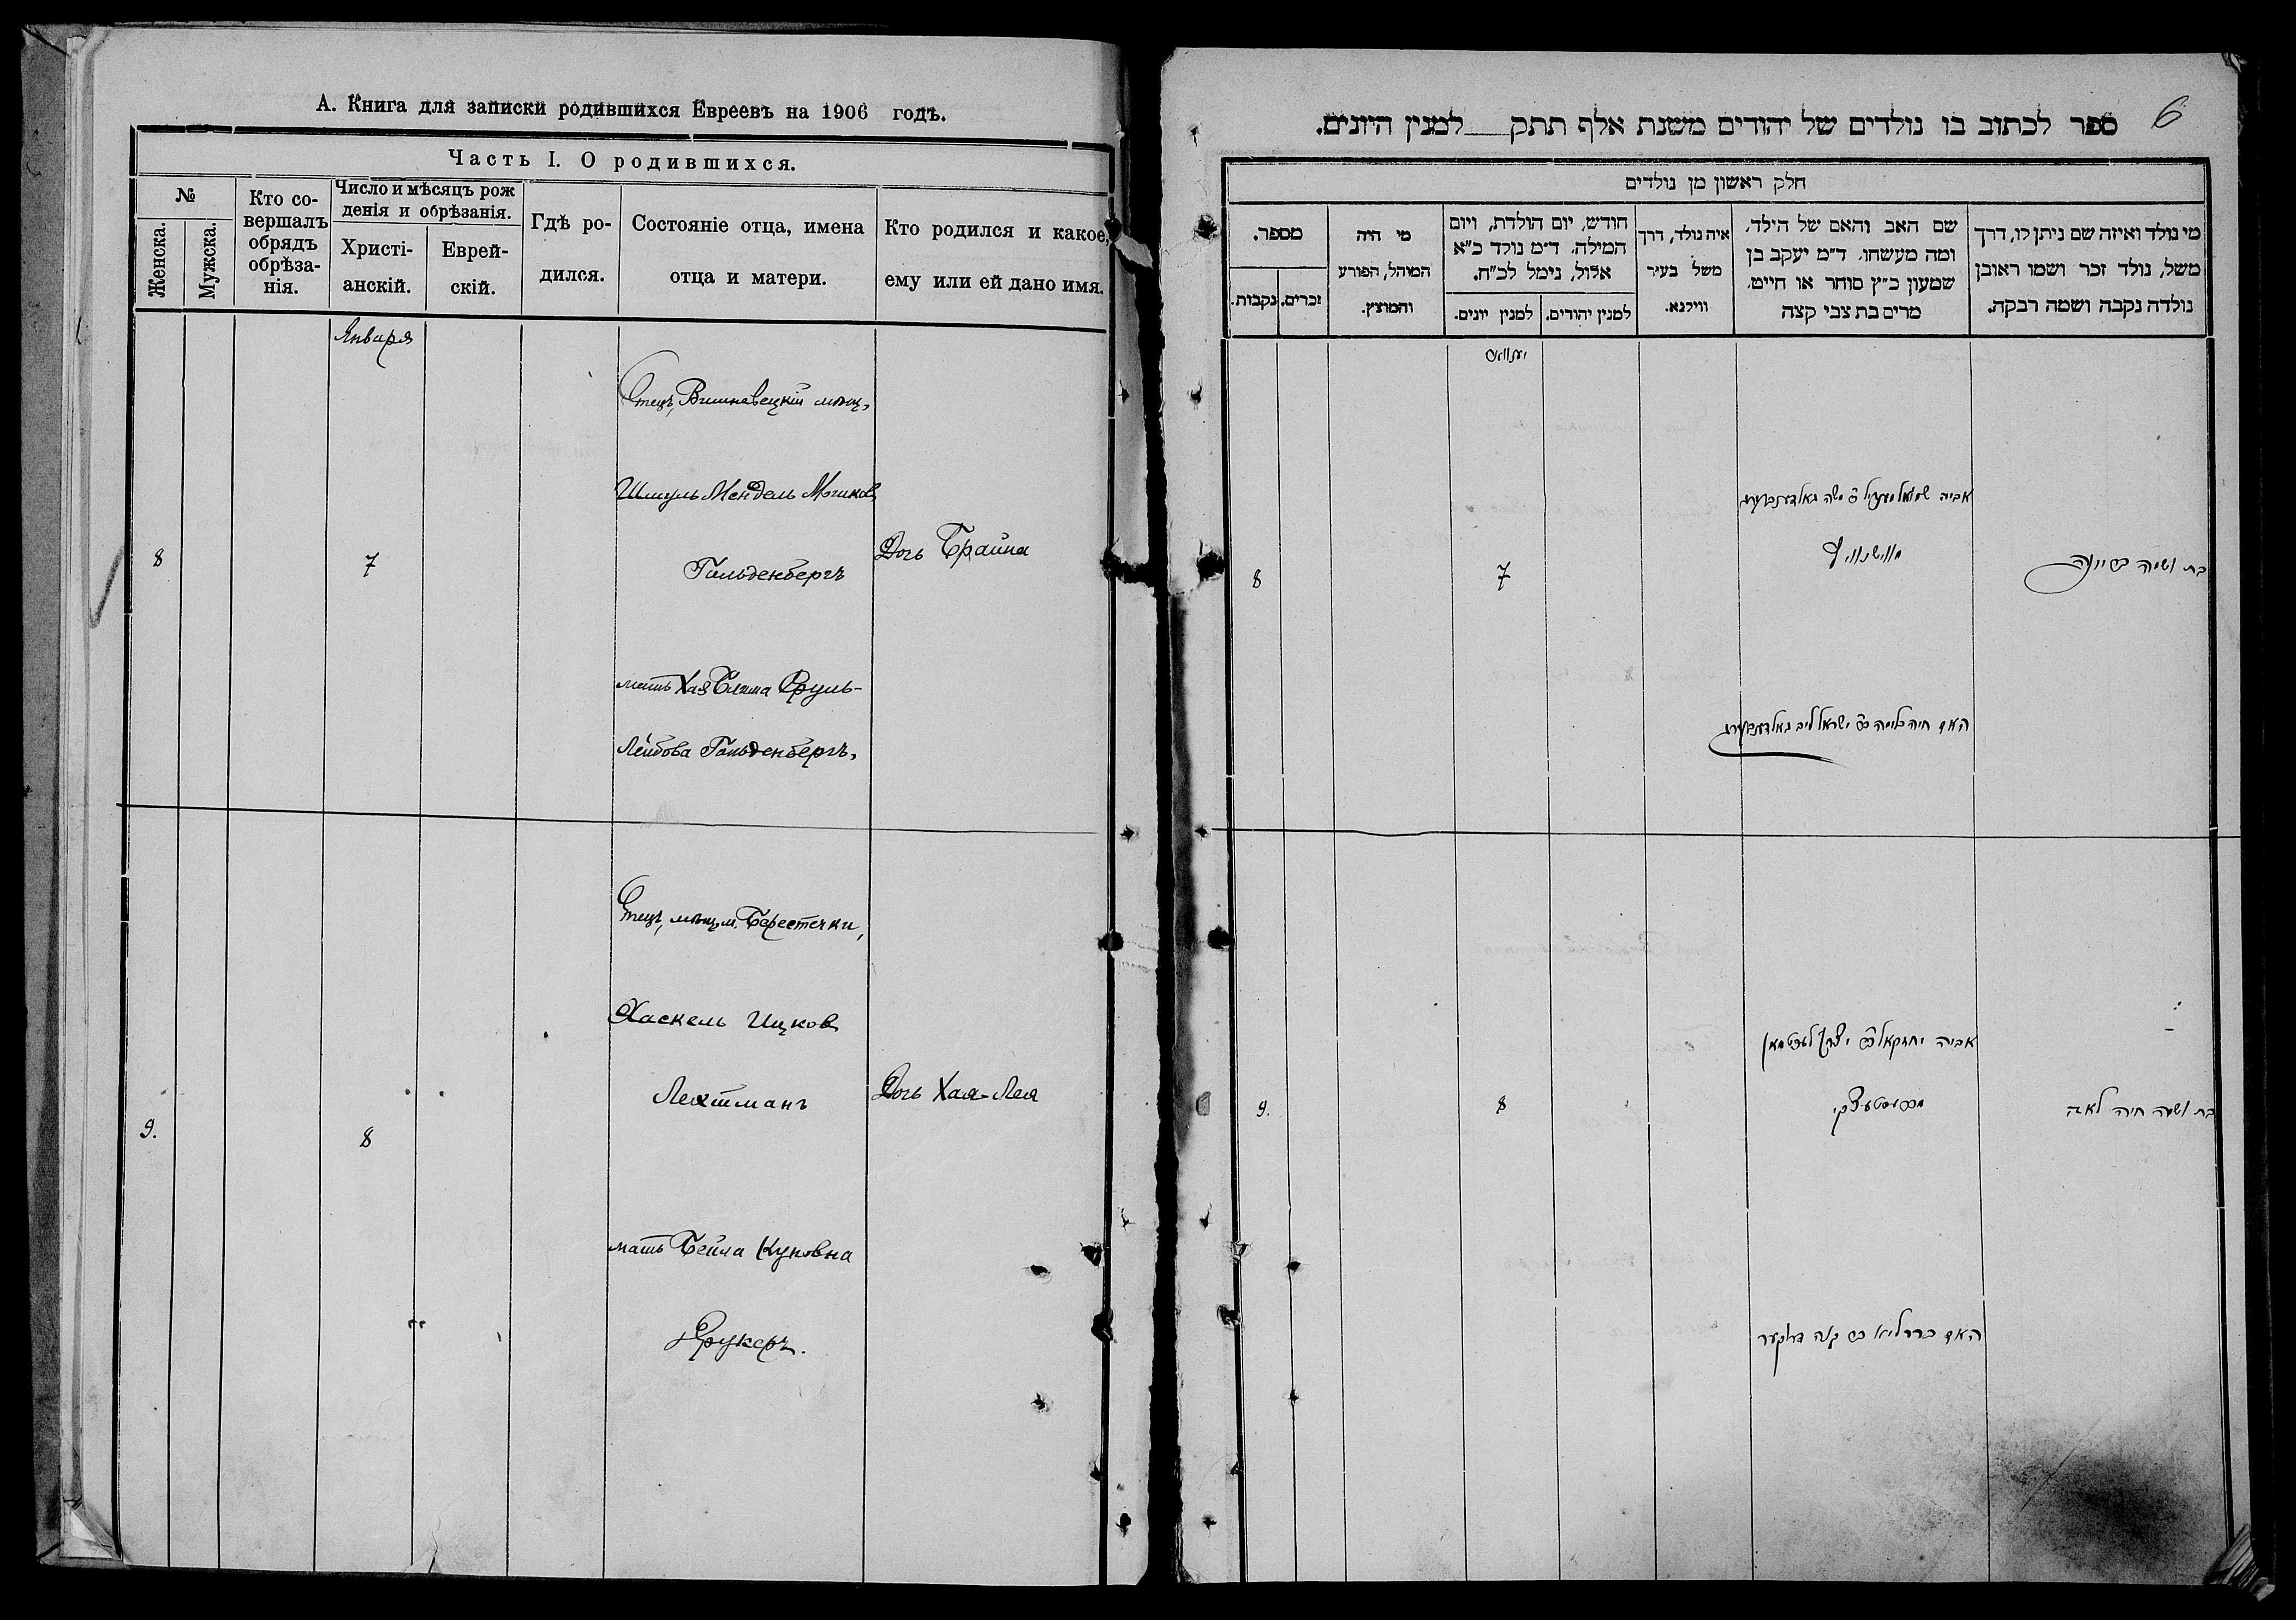 А. Книга для записки родившихся Евреевъ на 1906 годъ.
Часть I. О родившихся.
№
Женска.
Мужска.
Кто со-
вершалъ
обрядъ
обрѣза-
нія.
Число и мѣсяцъ рож
денія и обрѣзанія.
Христі-
анскій.
Еврей-
скій.
Гдѣ ро-
дился.
Состояніе отца, имена
отца и матери.
Кто родился и какое,
ему или ей дано имя.
Января
8
7
Отецъ, Вишневецкій мѣщ.
Шмуль Мендель Мошков
Гольденбергъ
мать Хая Блима Сруль-
Лейбова Гольденбергъ,
Дочь Брайна
9.
8
Отецъ, мѣщ. м. Берестечки,
Хаскель Ицков
Лехтманъ
мать Бейла Куновна
Друкеръ.
Дочь Хая-Лея
6
ספר לכתוב בו נולדים של יהודים משנת אלף תתק למנין היונים.
חלק ראשון מן נולדים
מי נולד ואיזה שם ניתן לו, דרך
משל, נולד זכר ושמו ראובן
נולדה נקבה ושמה רבקה.
שם האב והאם של הילד,
ומה מעשהו. ד"מ יעקב בן
שמעון כ"ץ סוחר או חייט.
מרים בת צבי קצה
איה נולד, דרך
משל בעיר
ווילנא.
חודש, יום הולדת, ויום
המילה. ד"מ נולד כ"א
אלול, נימל לכ"ח.
למנין יהודים.
למנין יונים.
מי היה
המוהל, הפורע
והמוצץ.
מספר.
זכרים.
נקבות.
8
7
אביה שמואל מענדיל ב"ר משה גאלדענבערג
בת ושמה בריינה
האם חיה בלימה בת ישראל ליב גאלדענבערג
9.
8
אביה יחזקאל ב"ר יצחק לעכטמאן
בת ושמה חיה לאה
האם ביילא בת קונה דרוקער